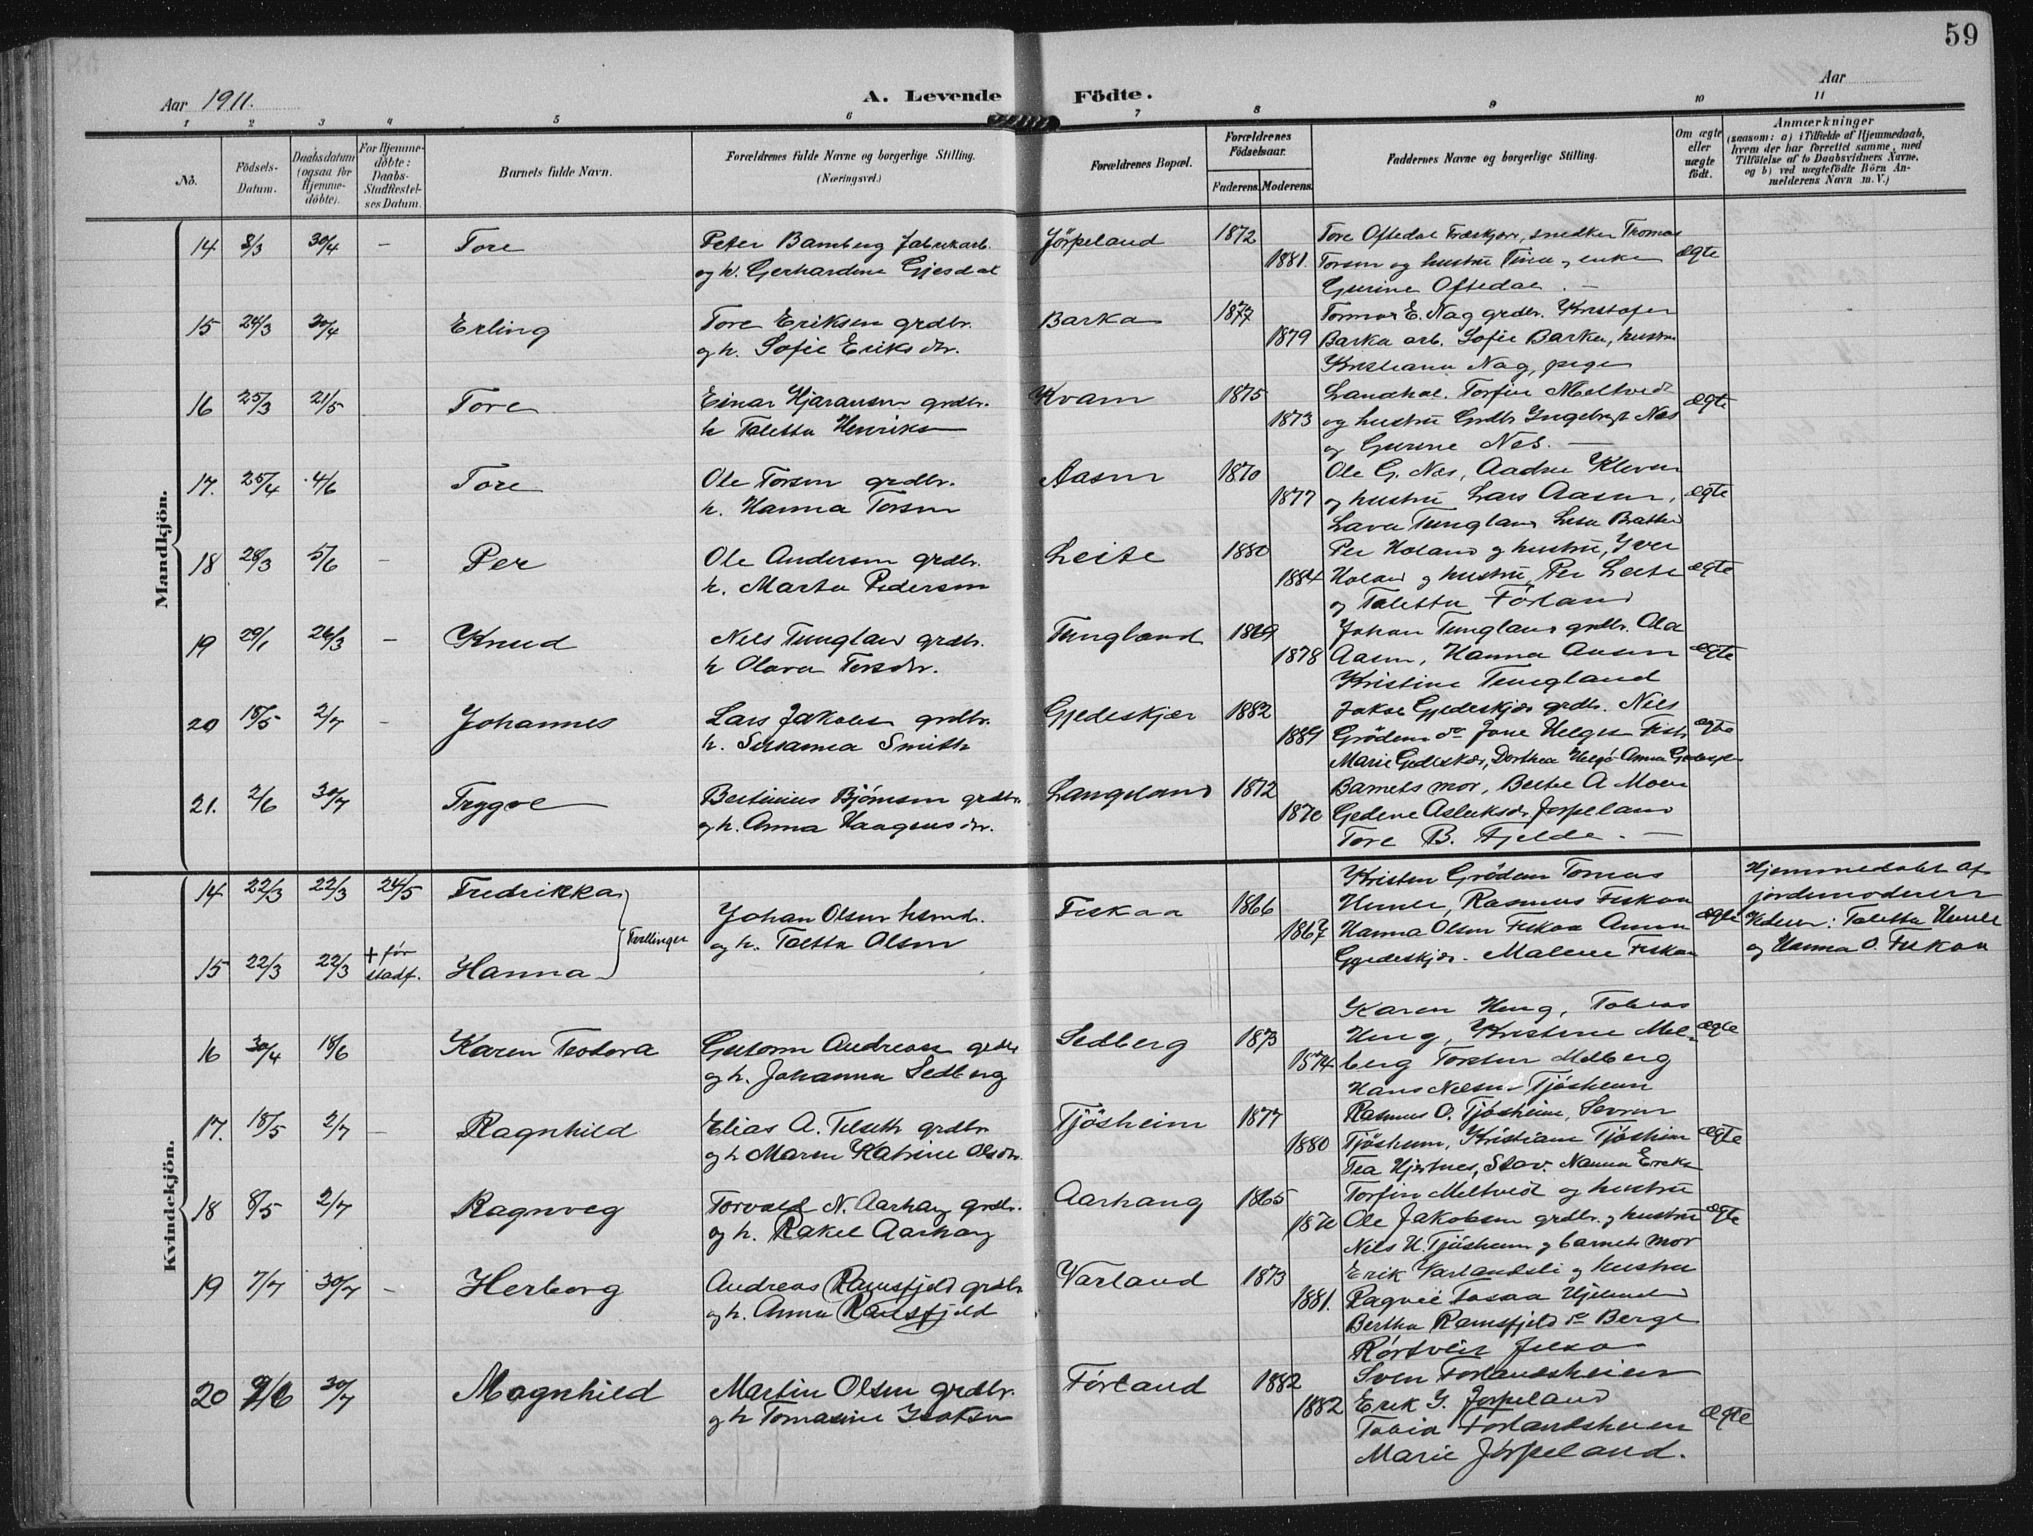 59
Aar 1911.
A. Levende Födte.
Aar
1 2 3 4 5 6 7 8 9 10 11
No.
Födsels-Datum.
Daabsdatum (ogsaa for Hjemme-döbte).
For Hjemme-döbte: Daabs-Stadfæstel-ses Datum.
Barnets fulde Navn.
Forældrenes fulde Navne og borgerlige Stilling.
(Næringsvei.)
Forældrenes Bopæl.
Forældrenes Födselsaar.
Faderens. Moderens.
Faddernes Navne og borgerlige Stilling.
Om ægte eller uægte födt.
Anmærkninger
(saasom: a) i Tilfælde af Hjemmedaab, hvem der har forrettet samme, med Tilföielse af to Daabsvidners Navne, og b) ved uægtefödte Börn An-melderens Navn m. V.)
Mandkjön.
14 8/3 30/4 - Tore Peter Bamberg fabrikarb. Jörpeland 1872 Tore Oftedal snedker Thomas
og h. Gerhardine Gjesdal 1881. og hustru Tina, enke ægte
Gurine Oftedal. -
15 24/3 30/4 Erling Tore Eriksen grdbr. Barka 1877 E. Nag grdbr. Kristofer
og h. Sofie Eriksdtr. 1879 Barka arb. Sofie Barka, hustru
Nag, pige
16 25/3 21/5 Tore Einar Hjaransen grdbr. Kvam 1875 Torfin Meltved
h Taletta Henriks 1873 og hustru Grdbr Ingebregt Nes ægte
og Gurine Nes. -
17. 25/4 4/6 Tore Ole Torsen grdbr. Aasen 1870 Ole G. Nes, Kleven
h. Hanna Torsen 1877 og hustru Lars Aasen, ægte
Lava Tungland
18 28/3 5/6 - Per Ole Andersen grdbr. Leite 1880 Per Holand og hustru, Iver
h. Marta Pedersen 1884 Holand og hustru, Per Leite ægte
og Taletta Förland
19 29/1 26/3 - Knud Nels Tungland grdbr. Tungland 1869 Johan Tungland grdbr. Ola
h Olava Torsdtr. 1878 Aasen, Hanna Aasen ægte
Kristine Tungland
20 18/5 2/7 - Johannes Lars Jakobsen grdbr. Gjedeskjær 1882 Jakob Gjedeskjær grdbr. Nils
h. Susanna Smith 1889 Grödem do Jone Helgø ægte
Marie Gjedeskær, Dorthea Helgø Anna
21. 2/6 30/7 Trygve Bertinius Björnsen grdbr. Langeland 1872 Barnets mor, Berte A Moen
og h. Anna Haagensdtr. 1870 Jørpeland
Tore B. Fjelde. -
Kvindekjön.
14 22/3 22/3 24/5 Fredrikka Kristen Grödem Tomas Hjemmedøbt af
Johan Olsen Fiskaa 1866 Rasmus Fiskaa jordemoderen
Tvillinger og h. Taletta Olsen 1867 Hanna Olsen Fiskaa Anna ægte Vidner: Taletta
15 22/3 22/3 + før stadf. Hanna Gjedeskjær. Malene Fiskaa og Hanna O. Fiskaa
Karen Heng, Tobias
16 30/4 18/6 Karen Teodora Gutorm Andreas grdbr Sedberg 1873 Heng, Kristine Mel- ægte
og h. Johanna Sedberg 1874 berg Torsten Melberg
Hans Nilsen Tjösheim
17. 18/5 2/7 - Ragnhild Elias A. grdbr Tjösheim 1877 Rasmus O. Tjösheim,
og h Maren Katrine Olsdtr. 1880 Tjösheim, Kristiane Tjösheim ægte
Tea Hjertnes, Stav.
18 8/5 2/7 Ragnveg Torvald N. Aarhaug grdbr. Aarhaug 1865 Torfin Meltveid og hustru
og h. Rakel Aarhaug 1870 Ole Jakobsen grdbr. og hustru ægte
Nils H. Tjösheim og barnets mor
19 7/7 30/7 - Herborg Andreas Ramsfjeld grdbr. Varland 1873 Erik Varlandsli og hustru
og h. Anna Ramsfjeld 1881. Tosaa Hjelmeland
Bertha Ramsfjeld do Berge
Jelsa
20 9/6 30/7 Magnhild Martin Olsen grdbr. Förland 1882 Sven Forlandsheien
og h Tomasine Isaksen 1882 Erik G. Jørpeland
Tabia Forlandsheien ægte
Marie Jörpeland.